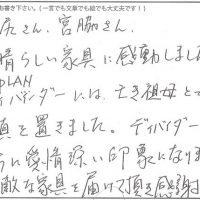 お書き下さい。(一言でも文章でも絵でも大丈夫です!)
尻さん、宮脇さん、
晴らしい家具に感動しました
PLAN
ディバイダーには、亡き祖母と
真を置きました。ディバイダー
うに愛情深い印象になりま
敵な家具を届けて頂き感謝